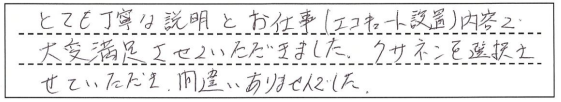 とても丁寧な説明とお仕事(エコキュート設置)内容で
大変満足させていただきました。クサネンを選択さ
せていただき、間違いありませんでした。